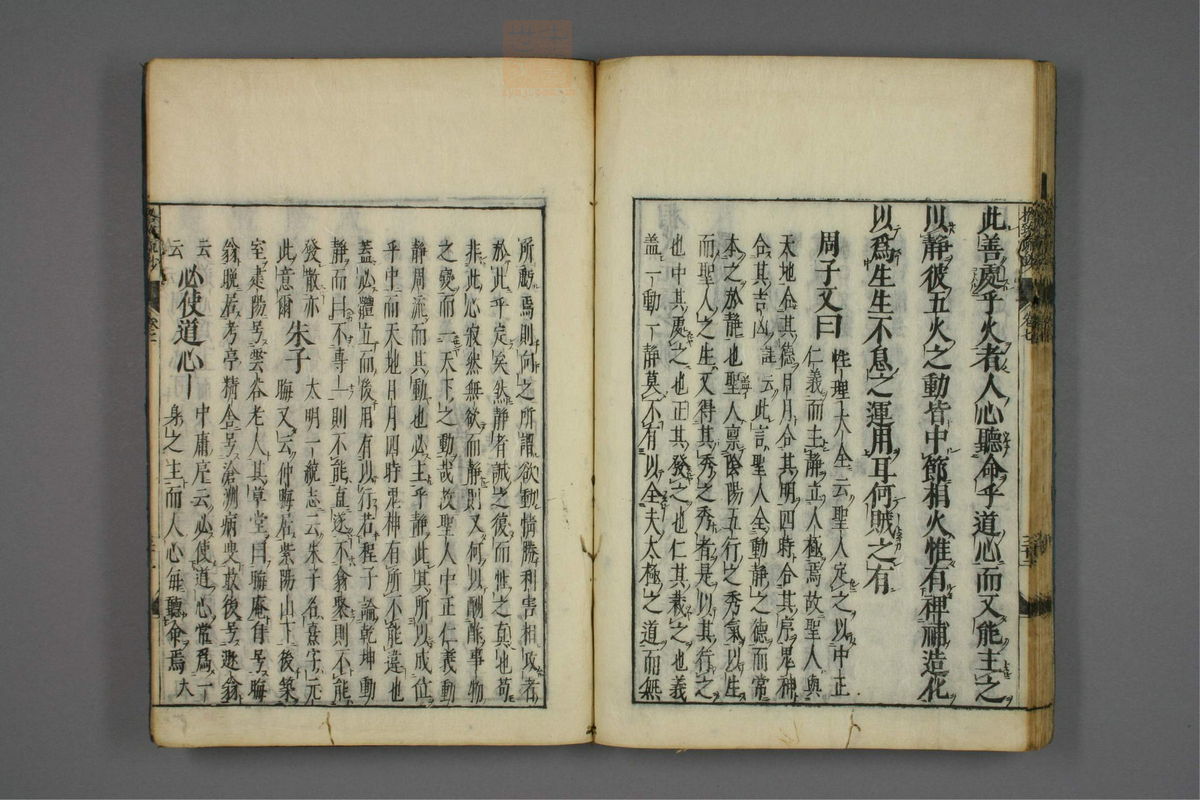 此善處乎火者人心聽命乎道心而又能主之
以靜彼五火之動皆中節相火惟有裨補造化
以爲生生不息之運用耳何賊之有
周子又曰 性理大全云聖人定之以中正
仁義而主靜立人極焉故聖人與
天地合其德日月合其明四時合其序鬼神
合其吉凶註云此言聖人全動靜之德而常
本之於靜也聖人稟陰陽五行之秀氣以生
而聖人之生又得其秀之秀者是以其行之
也中其處之也正其發之也仁其裁之也義
蓋一動一靜莫不有以全夫太極之道而無
所虧焉則向之所謂欲動情勝利害相攻者
於此乎定矣然靜者誠之復而性之真也苟
非此心寂然無欲而靜則又何以酬酢事物
之變而一天下之動哉故聖人中正仁義動
靜周流而其動也必主乎靜此其所以成位
乎中而天地日月四時鬼神有所不能違也
蓋必體立而後用有以行若程子論乾坤動
靜而曰不專一則不能直遂不翕聚則不能
發散亦
此意爾
朱子 太明一統志云朱子名熹字元
晦又云仲晦居紫陽山下後築
室建陽号雲谷老人其草堂曰晦庵自号晦
翁晚居考亭精舍号滄洲病叟最後号遯翁
云 必使道心一 中庸序云必使道心常爲一
身之主而人心每聽命焉大
云